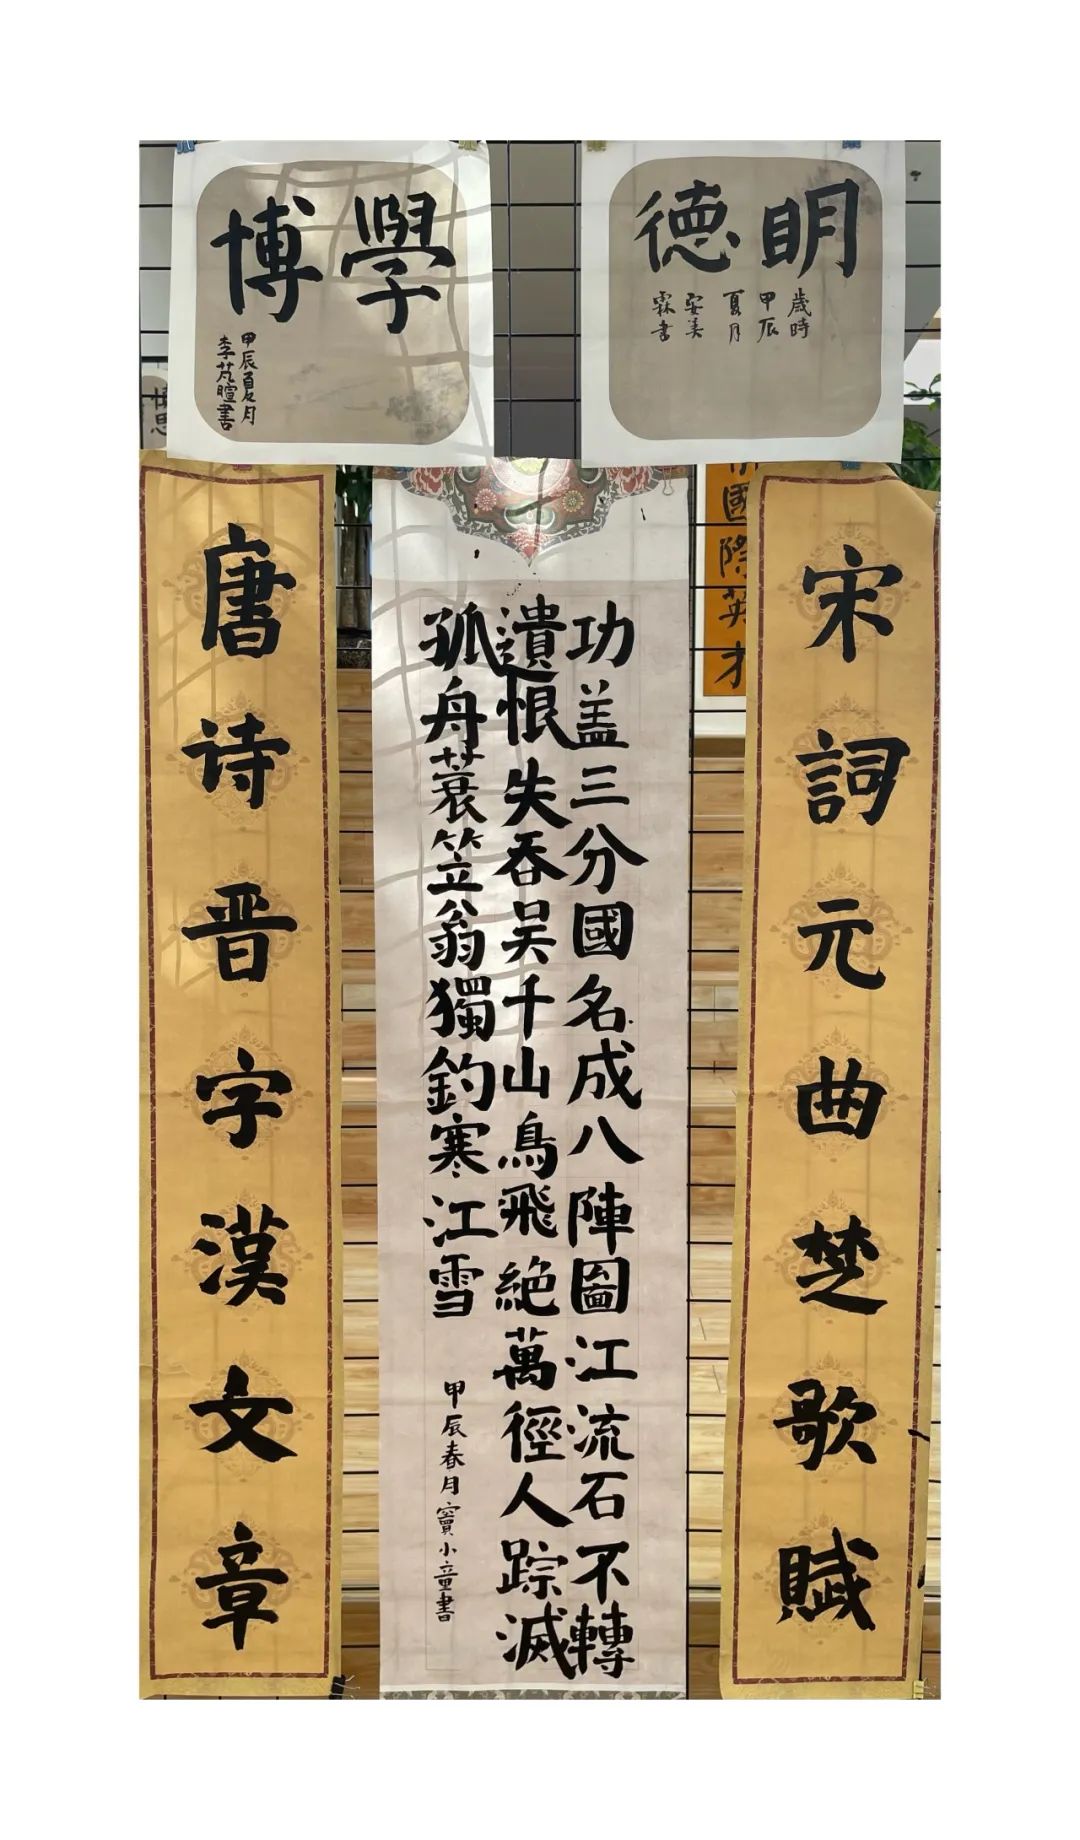 明德
歲時
甲辰
夏月
安美
霖書
學博
甲辰夏月
李芃暄書
宋詞元曲楚歌賦
國際英才
功盖三分國名成八陣圖江流石不轉
遺恨失吞吴千山鳥飛絶萬徑人踪滅
孤舟蓑笠翁獨釣寒江雪
甲辰春月竇小童書
唐诗晋字漢文章